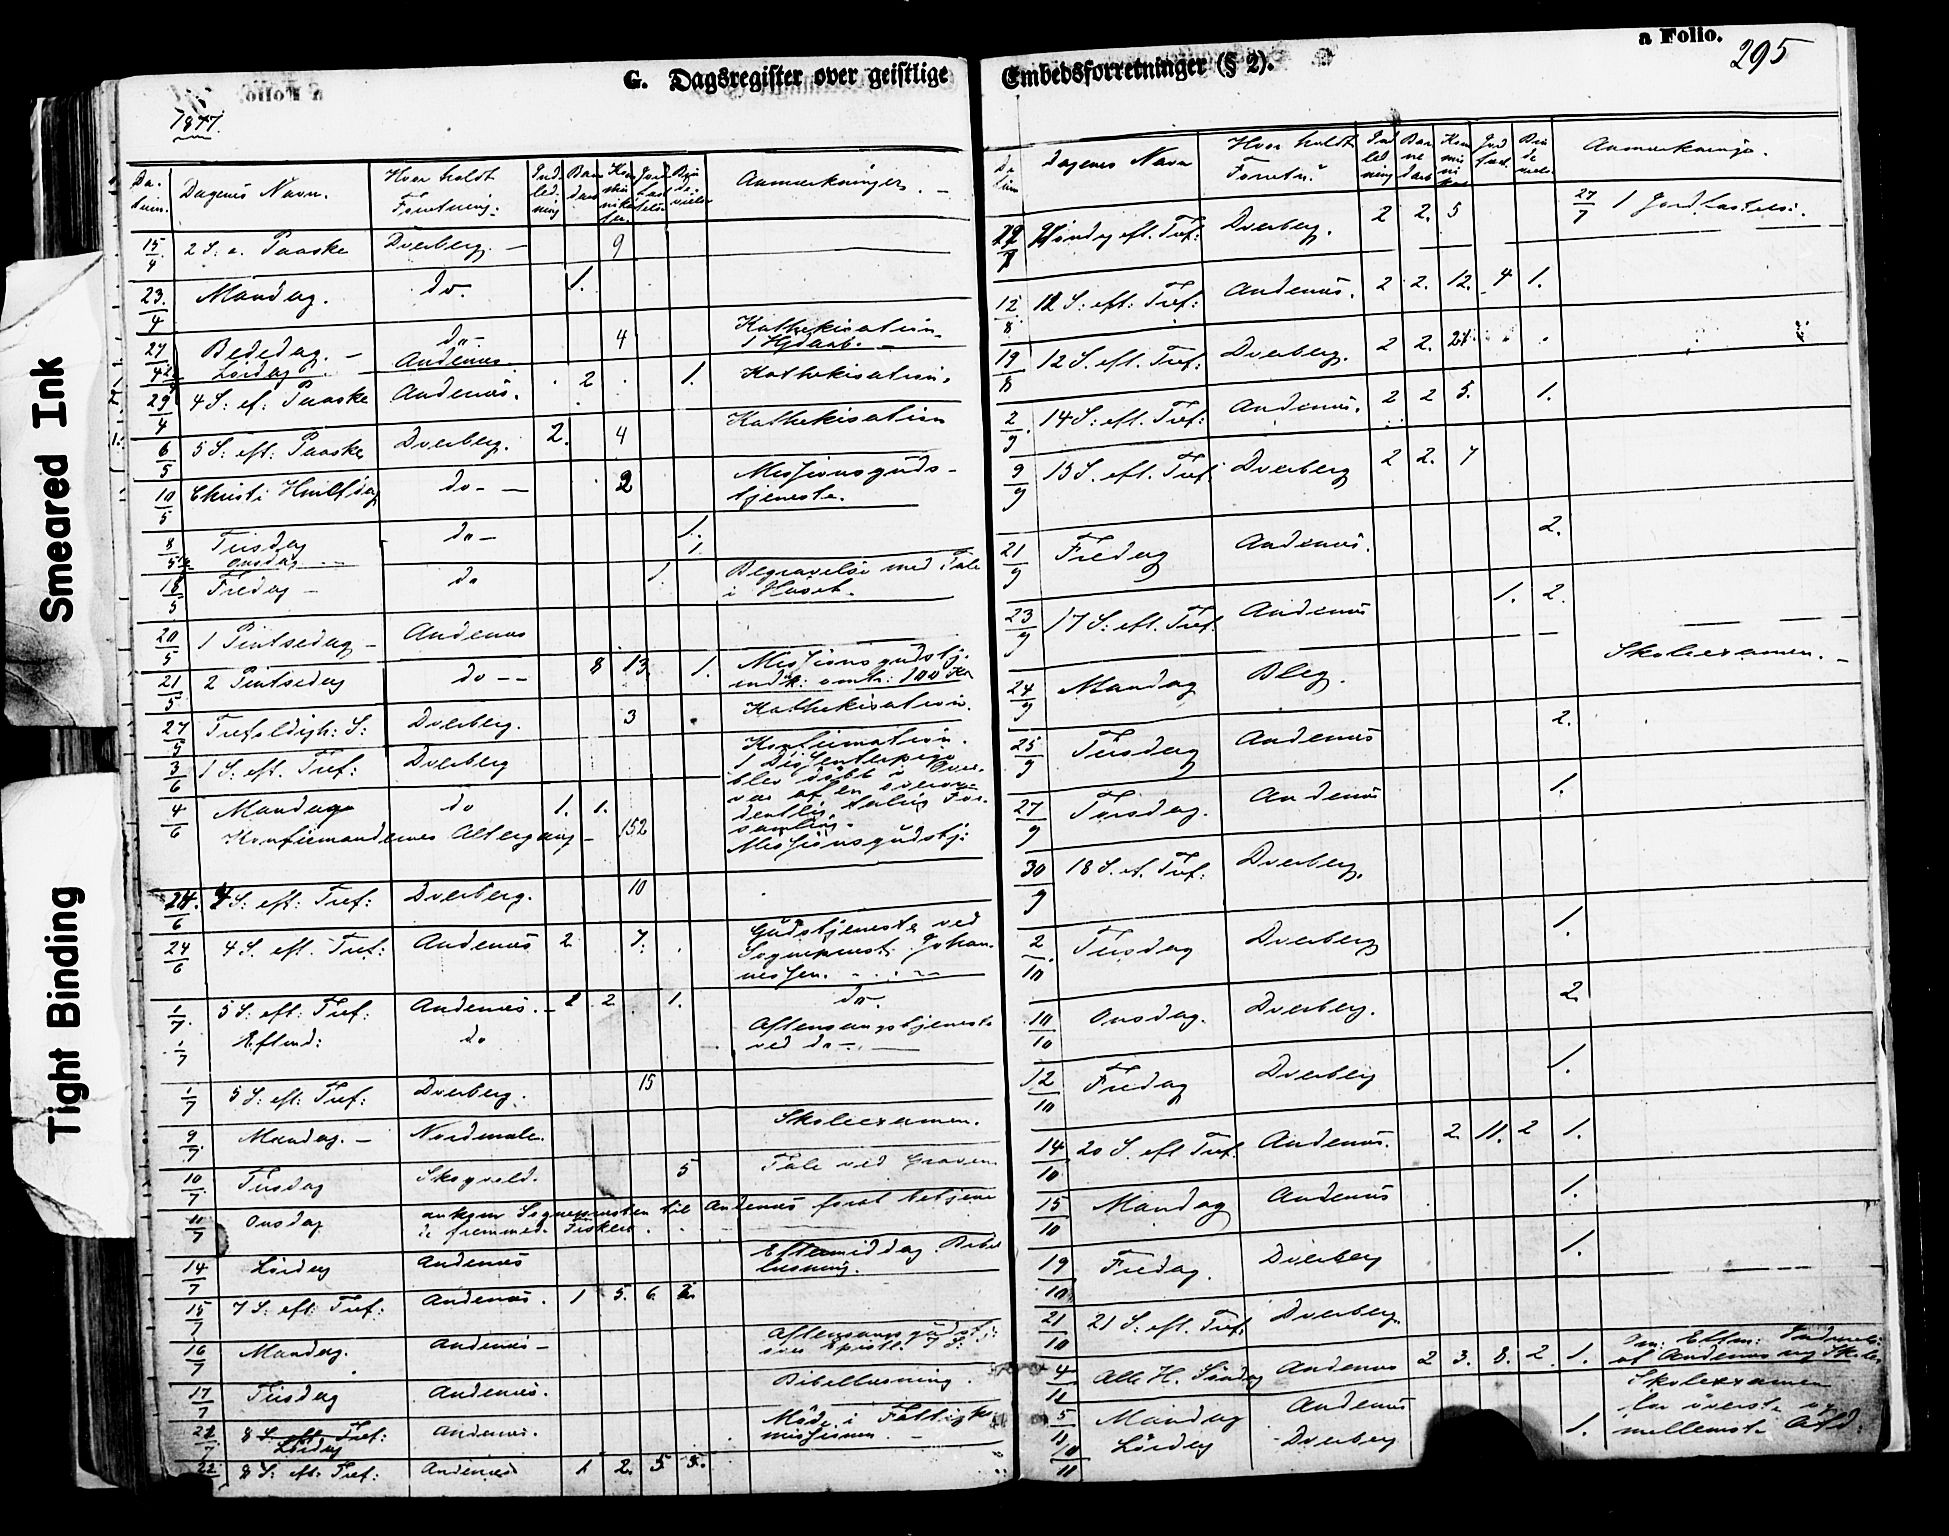 Smeared Ink
Tight Binding
G. Dagsregister over geistlige
1877.
Datum. Dagens Navn. Hvor holdt Forretning. Indledning Kommunikanter Jordfæstelse Anmærkninger.
15/4 2 S. e. Paaske Dverberg. 9
23/4 Mandag. do. 1.
27/4 Bededag. do 4 Kathekisation
Lördag Andenæs
29/4 4 S: ef: Paaske Andenæs. 2 1. Kathekisation.
6/5 5 S: eft: Paaske Dverberg. 2. 4 Kathekisation
10/5 Christi Himlfdag do 2 Missionsguds-
tjeneste.
8/5 Tirsdag do 1.
Onsdag 1.
18/5 Fredag do 1. Begravelse med Tale
i Huset.
20/5 1 Pintsedag Andenæs
21/5 2 Pintsedag do 8 13. 1. Missionsgudstj.
100 Kr
27/5 Trefoldigh: S: Dverberg. 3 Kathekisation.
3/6 1 S. eft. Tref: Dverberg Konfirmation.
1 Dissenterpige
blev döbt i Over-
vær af en overor-
dentlig talrig For-
samling.
4/6 Mandag do 1. 1.
Konfirmandernes Altergang 152 Missionsgudstj:
24/6 4 S: eft: Tref: Dverberg. 10
24/6 4 S. eft. Tref: Andenæs 2 7. Gudstjeneste ved
Sognepræst Johan-
nessen.
1/7 5 S. eft: Tref: Andenæs. 2 2 1. do.
1/7 Eftmd: do Aftensangstjeneste
ved do
1/7 5 S: eft: Tref: Dverberg. 15
9/7 Mandag. Nordmele. Skoleexamen.
10/7 Tirsdag Skogvold. 5 Tale ved Graven
11/7 Onsdag ankom Sognepræsten til Andenæs forat betjene
de fremmede Fiskere.
14/7 Lördag Andenæs Eftermiddag Bibel
læsning.
15/7 7 S: eft: Tref: Andenæs. 1 5. 6. 2.
16/7 Mandag. Andenæs Aftensangsgudstj:
over Epistl. 7 S:
17/7 Tirsdag Andenæs. Bibellæsning.
21/7 8 S. eft: Tref: Andenæs. Möde i Fattigkom
Lördag missionen.
22/7 8 S: eft: Tref: Andenæs 1 2. 5 5.
a Folio.
295
Embedsforretninger (§ 2).
Datum Dagens Navn Hvor holdt Forretn. Indledning Barnedaab Anmærkninger.
29/7 Söndag eft. Tref: Dverberg. 2 2. 5 27/7 1 Jordfæstelse.
12/8 11 S. eft: Tref: Andenæs. 2 2. 12. 4 1.
19/8 12 S. eft. Tref: Dverberg. 2 2. 24
2/9 14 S: eft. Tref: Andenæs. 2 2 5. 1.
9/9 15 S. eft. Tref: Dverberg 2 2. 7
21/9 Fredag Andenæs. 2.
23/9 17 S: eft. Tref. Andenæs 1. 2.
24/9 Mandag Bleg. Skoleexamen.
25/9 Tirsdag Andenæs 2.
27/9 Torsdag. Andenæs 1.
30/9 18 S. ef. Tref: Dverberg.
2/10 Tirsdag Dverberg 1.
10/10 Onsdag. Dverberg. 2.
12/10 Fredag Dverberg 1.
14/10 20 S. eft Tref. Andenæs. 2. 11. 2 1.
15/10 Mandag Andenæs 1.
19/10 Fredag. Dverberg 1.
21/10 21 S. eft. Tref. Dverberg.
4/11 Alle H. Söndag Andenæs 2 3. 8. 2. 1.
af Andenæs
5/11 Mandag Andenæs Skoleexamen
for överste og
10/11 Lördag Dverberg 1. mellemste Afd.